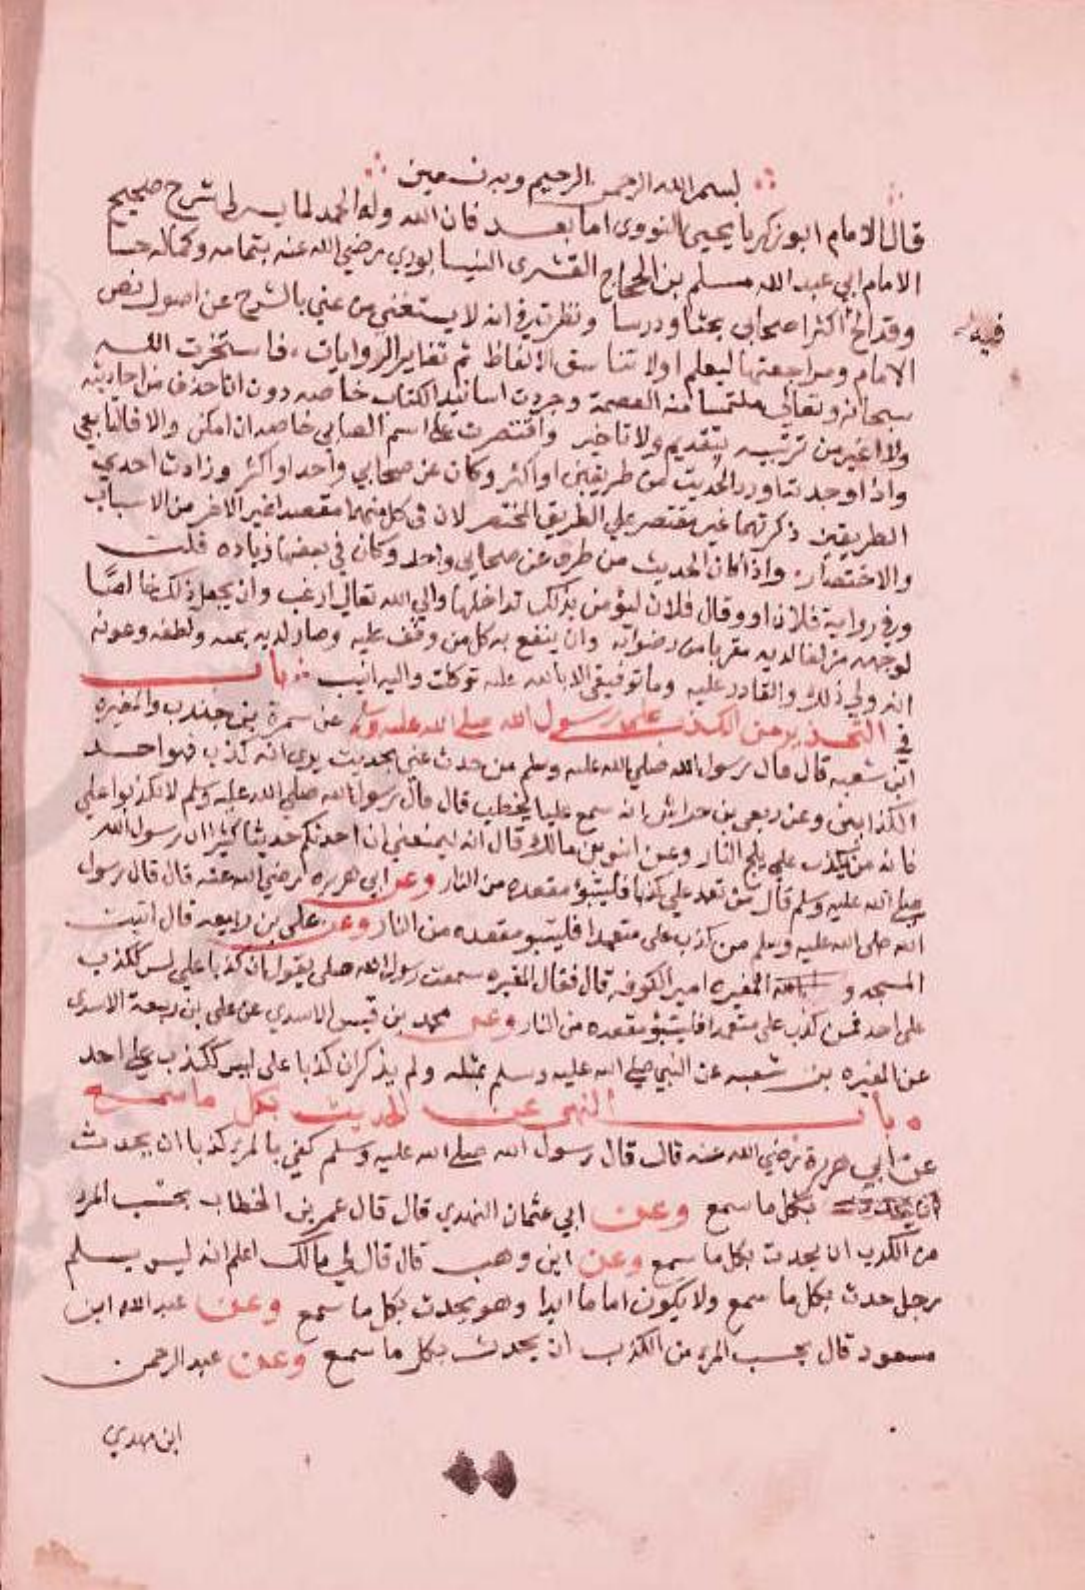 بسم الله الرحمن الرحيم وبه نستعين
قال الامام ابو زكريا يحيى النووى اما بعد فان الله وله الحمد لما يسر لى شرح صحيح
الامام ابي عبد الله مسلم بن الحجاج القشرى النيسابوري رضي الله عنه بتمامه وكماله حسا
وقد الح اكثر اصحابى بحثا ودرسا ونظرت في انه لا يستغنى من عني بالشرح عن اصول نص
فيه
الامام ومراجعتها ليعلم اولا تناسق الالفاظ ثم تغاير الروايات فاستخرت الله
سبحانه وتعالي ملتمسا منه العصمة وجردت اسانيد الكتاب خاصه دون ان احذف من احاديثه
ولا اغير من ترتيبه بتقديم ولا تاخير واقتصرت على اسم الصحابي خاصه ان امكن والا فالتابعي
واذا وجدتنا ورد الحديث من طريقين او اكثر وكان عن صحابي واحد او اكثر وزادت احدي
الطريقين ذكرتهما غير مقتصر علي الطريق المختصر لان في كل منهما مقصدا غير الاخر من الاسباب
والاختصار واذا كان الحديث من طرق عن صحابي واحد وكان في بعضها زياده قلت
وفي رواية فلان او وقال فلان ليؤمن بذلك تداخلها والي الله تعالى ارغب وان يجعل ذلك خالصا
لوجهه مزلفا لديه مقربا من رضوانه وان ينفع به كل من وقف عليه وصار لديه بمنه ولطفه وعونه
انه ولي ذلك والقادر عليه وما توفيقي الا بالله عليه توكلت واليه انيب باب
في التحذير من الكذب على رسول الله صلي الله عليه وسلم عن سمرة بن جندب والمغيره
ابن شعبه قال قال رسول الله صلي الله عليه وسلم من حدث عني بحديث يرى انه كذب فهو احد
الكذابين وعن ربعي بن حراش انه سمع عليا يخطب قال قال رسول الله صلي الله عليه وسلم لا تكذبوا علي
فانه من يكذب علي يلج النار وعن انس بن مالك قال انه ليمنعني ان احدثكم حديثا كثيرا ان رسول الله
صلي الله عليه وسلم قال من تعمد علي كذبا فليتبوؤ مقعده من النار وعن ابي هريره رضي الله عنه قال قال رسول
الله صلى الله عليه وسلم من كذب على متعمدا فليتبو مقعده من النار وعن على بن ربيعه قال اتيت
المسجد و المغيره امير الكوفه قال فقال المغيره سمعت رسول الله صلى يقول ان كذبا علي ليس ككذب
على احد فمن كذب على متعمدا فليتبؤ مقعده من النار وعن محمد بن قيس الاسدي عن على بن ربيعة الاسدى
عن المغيره بن شعبه عن النبي صلي الله عليه وسلم بمثله ولم يذكر ان كذبا على ليس ككذب علي احد
باب النهى عن الحديث بكل ما سمع
عن ابي هريرة رضي الله عنه قال قال رسول الله صلي الله عليه وسلم كفي بالمرء كذبا ان يحدث
بكل ما سمع وعن ابي عثمان النهدي قال قال عمر بن الخطاب بحسب المرء
من الكذب ان يحدث بكل ما سمع وعن ابن وهب قال قال لي مالك اعلم انه ليس يسلم
رجل حدث بكل ما سمع ولا يكون اماما ابدا وهو يحدث بكل ما سمع وعن عبد الله ابن
مسعود قال بحسب المرء من الكذب ان يحدث بكل ما سمع وعن عبد الرحمن
ابن مهدي